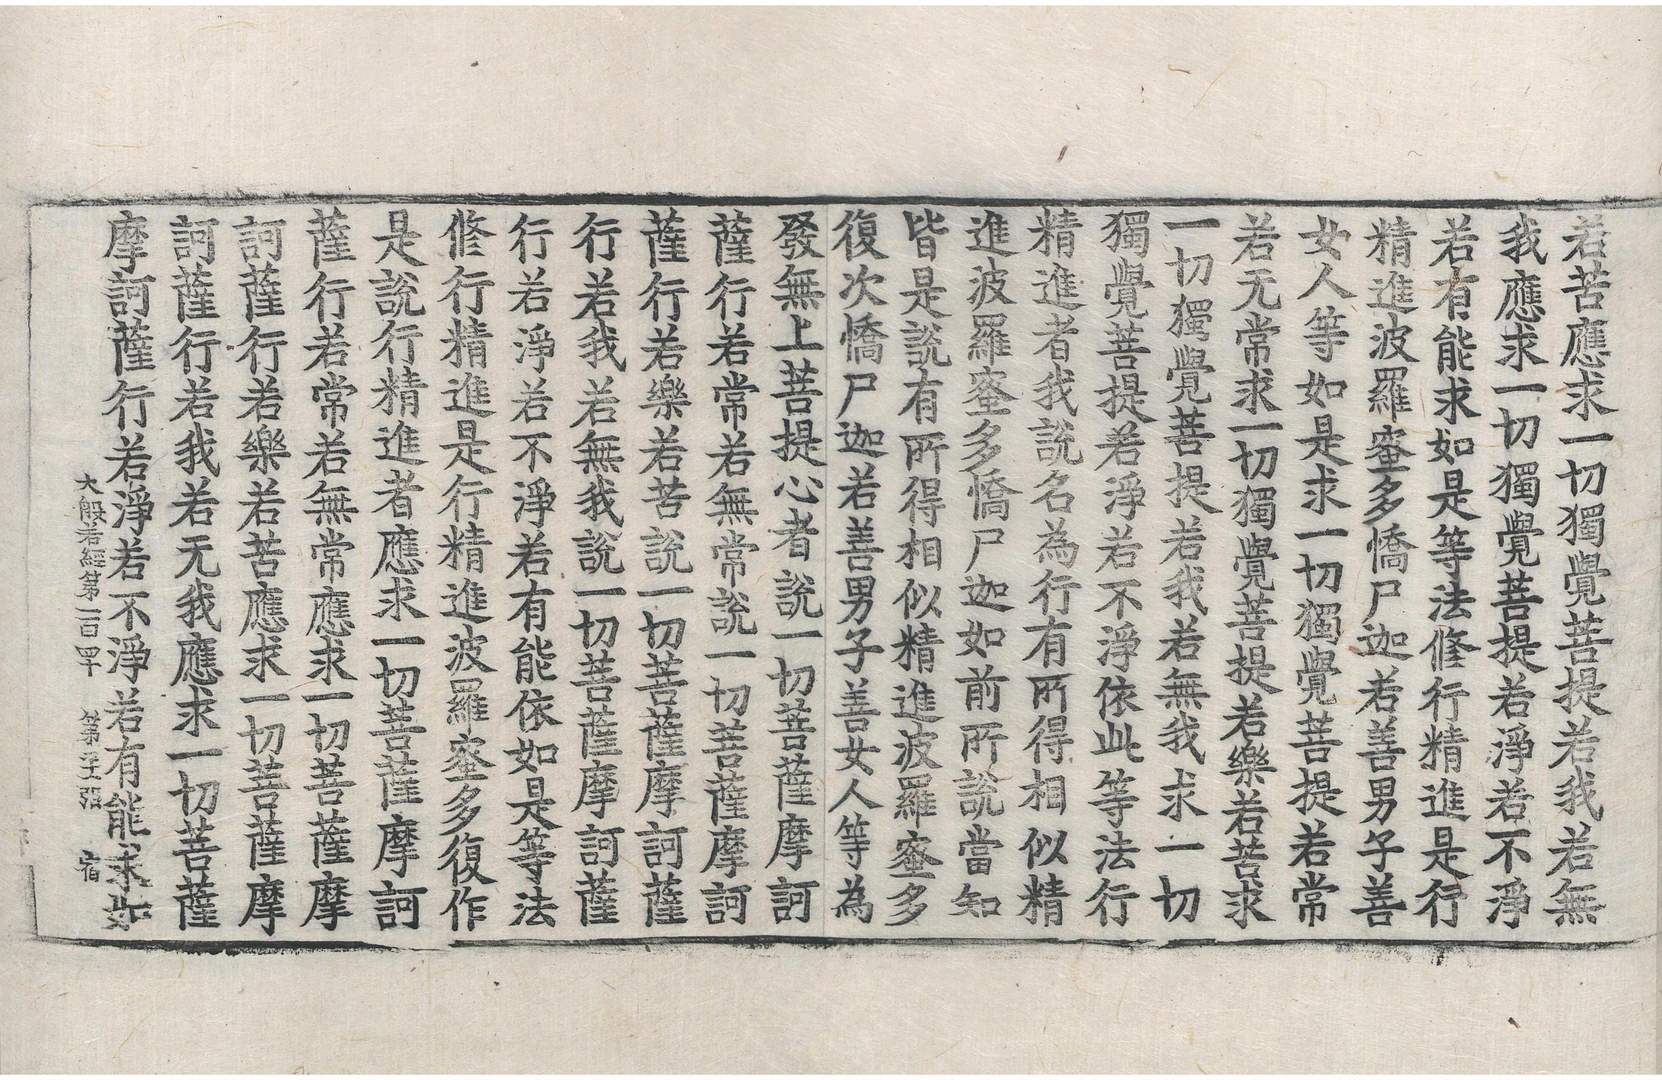 若苦應求一切獨覺菩提若我若無
我應求一切獨覺菩提若淨若不淨
若有能求如是等法修行精進是行
精進波羅蜜多憍尸迦若善男子善
女人等如是求一切獨覺菩提若常
若无常求一切獨覺菩提若樂若苦求
一切獨覺菩提若我若無我求一切
獨覺菩提若淨若不淨依此等法行
精進者我說名為行有所得相似精
進波羅蜜多憍尸迦如前所說當知
皆是說有所得相似精進波羅蜜多
復次憍尸迦若善男子善女人等為
發無上菩提心者說一切菩薩摩訶
薩行若常若無常說一切菩薩摩訶
薩行若樂若苦說一切菩薩摩訶薩
行若我若無我說一切菩薩摩訶薩
行若淨若不淨若有能依如是等法
修行精進是行精進波羅蜜多復作
是說行精進者應求一切菩薩摩訶
薩行若常若無常應求一切菩薩摩
訶薩行若樂若苦應求一切菩薩摩
訶薩行若我若无我應求一切菩薩
摩訶薩行若淨若不淨若有能求如
大般若經第一百四十 第張 宿